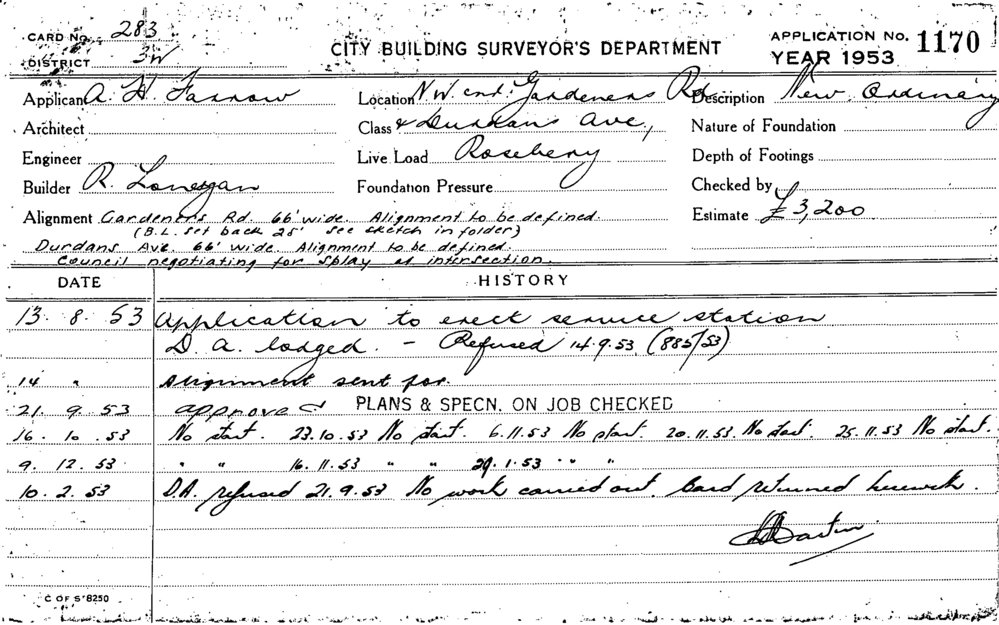 CARD No. 283
DISTRICT 3W
CITY BUILDING SURVEYOR'S DEPARTMENT
APPLICATION No. 1170
YEAR 1953
Applicant A. H. Farrow Location N.W. cnr. Gardeners Rd Description New Ordinary
Architect Class & Durdans Ave, Nature of Foundation
Engineer Live Load Rosebery Depth of Footings
Builder R. Lonergan Foundation Pressure Checked by
Alignment Gardeners Rd. 66' wide. Alignment to be defined. Estimate £3,200
(B.L. set back 25' see sketch in folder)
Durdans Ave. 66' wide. Alignment to be defined.
Council negotiating for splay at intersection.
DATE HISTORY
13. 8. 53 Application to erect service station
D. A. lodged. - Refused 14.9.53 (885/53)
14 " Alignment sent for.
21. 9. 53 approved PLANS & SPECN. ON JOB CHECKED
16. 10. 53 No start. 23.10.53 No start. 6.11.53 No start. 20.11.53. No start. 25.11.53 No start.
9. 12. 53 " " 16.11.53 " " 29.1.53 " "
10. 2. 53 D.A. refused 21.9.53 No work carried out. Card returned herewith.
C OF S 8250